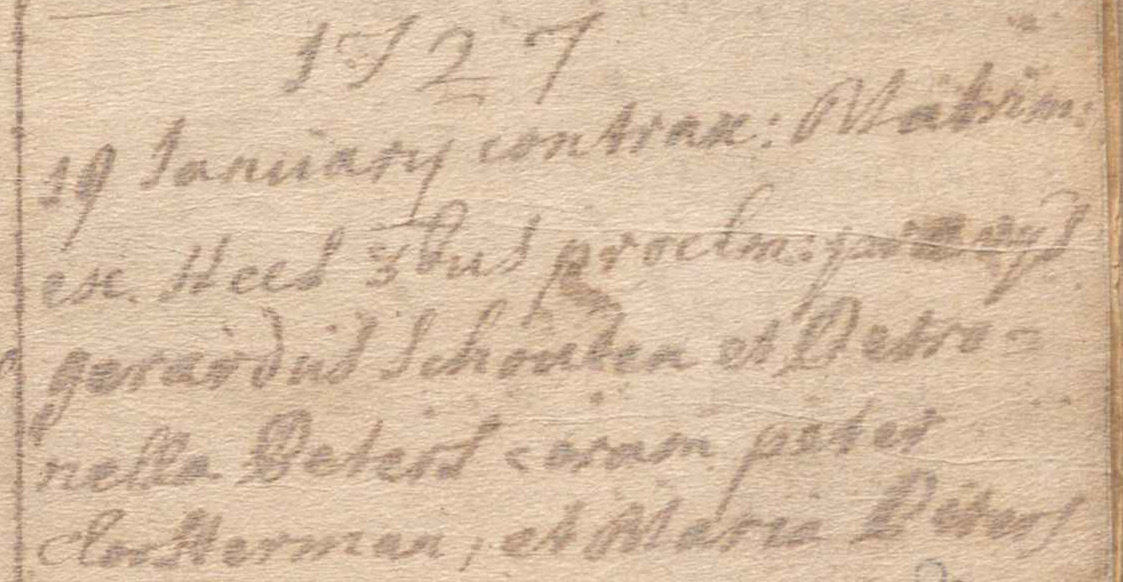 1727
19 January contrax: Matrim:
ex. Heel 3bus proclm: praemys
gerardus Schouten et Petro=
nella Peters coram peter
Closterman, et Maria Peters